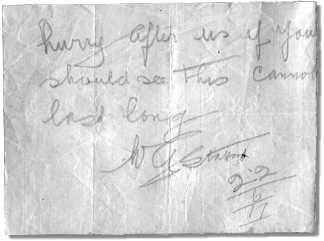 hurry after us if you
should see This cannot
last long
2-2